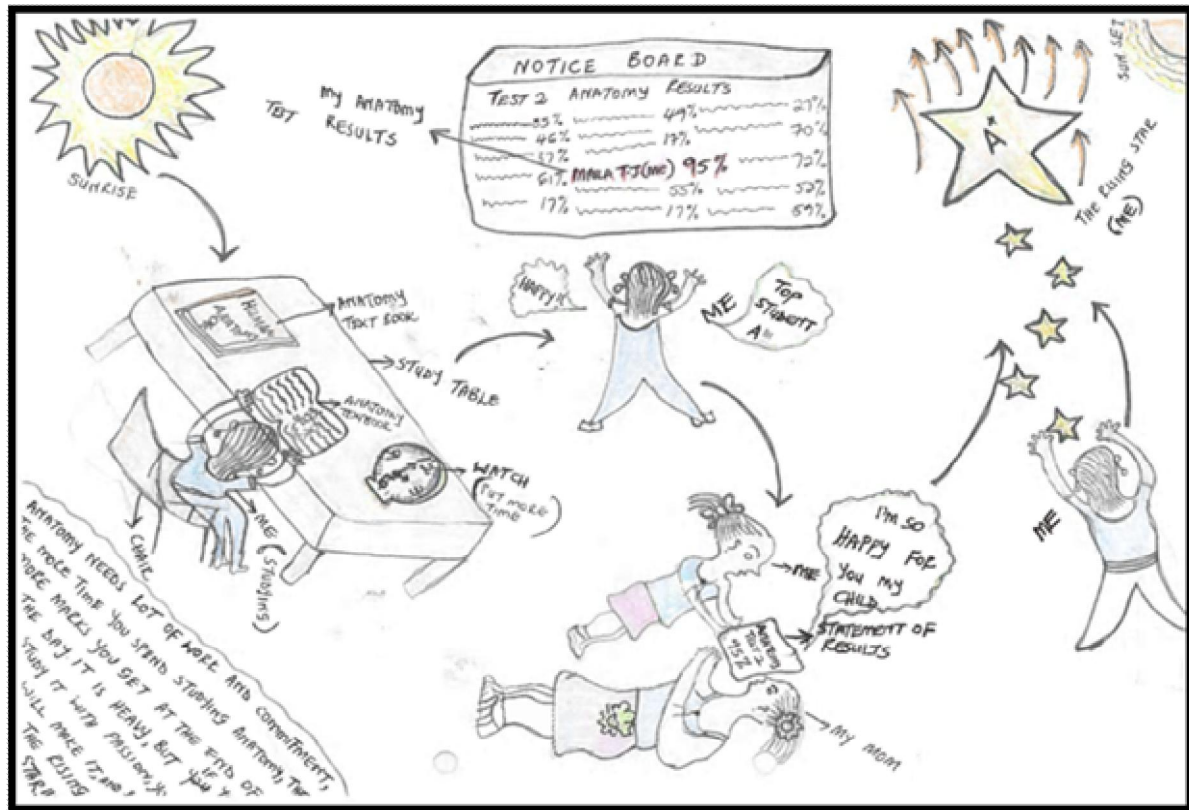 SUNRISE
MY ANATOMY
TEST RESULTS
NOTICE BOARD
TEST 2 ANATOMY RESULTS
49% 27%
46% 17% 70%
61% MALA T-J (ME) 95% 72%
55% 52%
17% 17% 59%
A*
SUN SET
THE RISING STAR
(ME)
HUMAN
ANATOMY
ANATOMY
TEXT BOOK
STUDY TABLE
ANATOMY
TEXTBOOK
WATCH
(PUT MORE
TIME)
ME (STUDYING)
CHAIR
HAPPY!!
ME
TOP
STUDENT
ME
I'M SO
HAPPY FOR
YOU MY
CHILD
ANATOMY
TEST 2
95%
STATEMENT OF
RESULTS
MY MOM
ME
ANATOMY NEEDS LOT OF WORK AND COMMITMENT,
THE MORE TIME YOU SPEND STUDYING ANATOMY, THE
MORE MARKS YOU GET AT THE END OF
THE DAY. IT IS HEAVY, BUT IF YOU
STUDY IT WITH PASSION,
WILL MAKE IT, AND
THE RISING
STAR